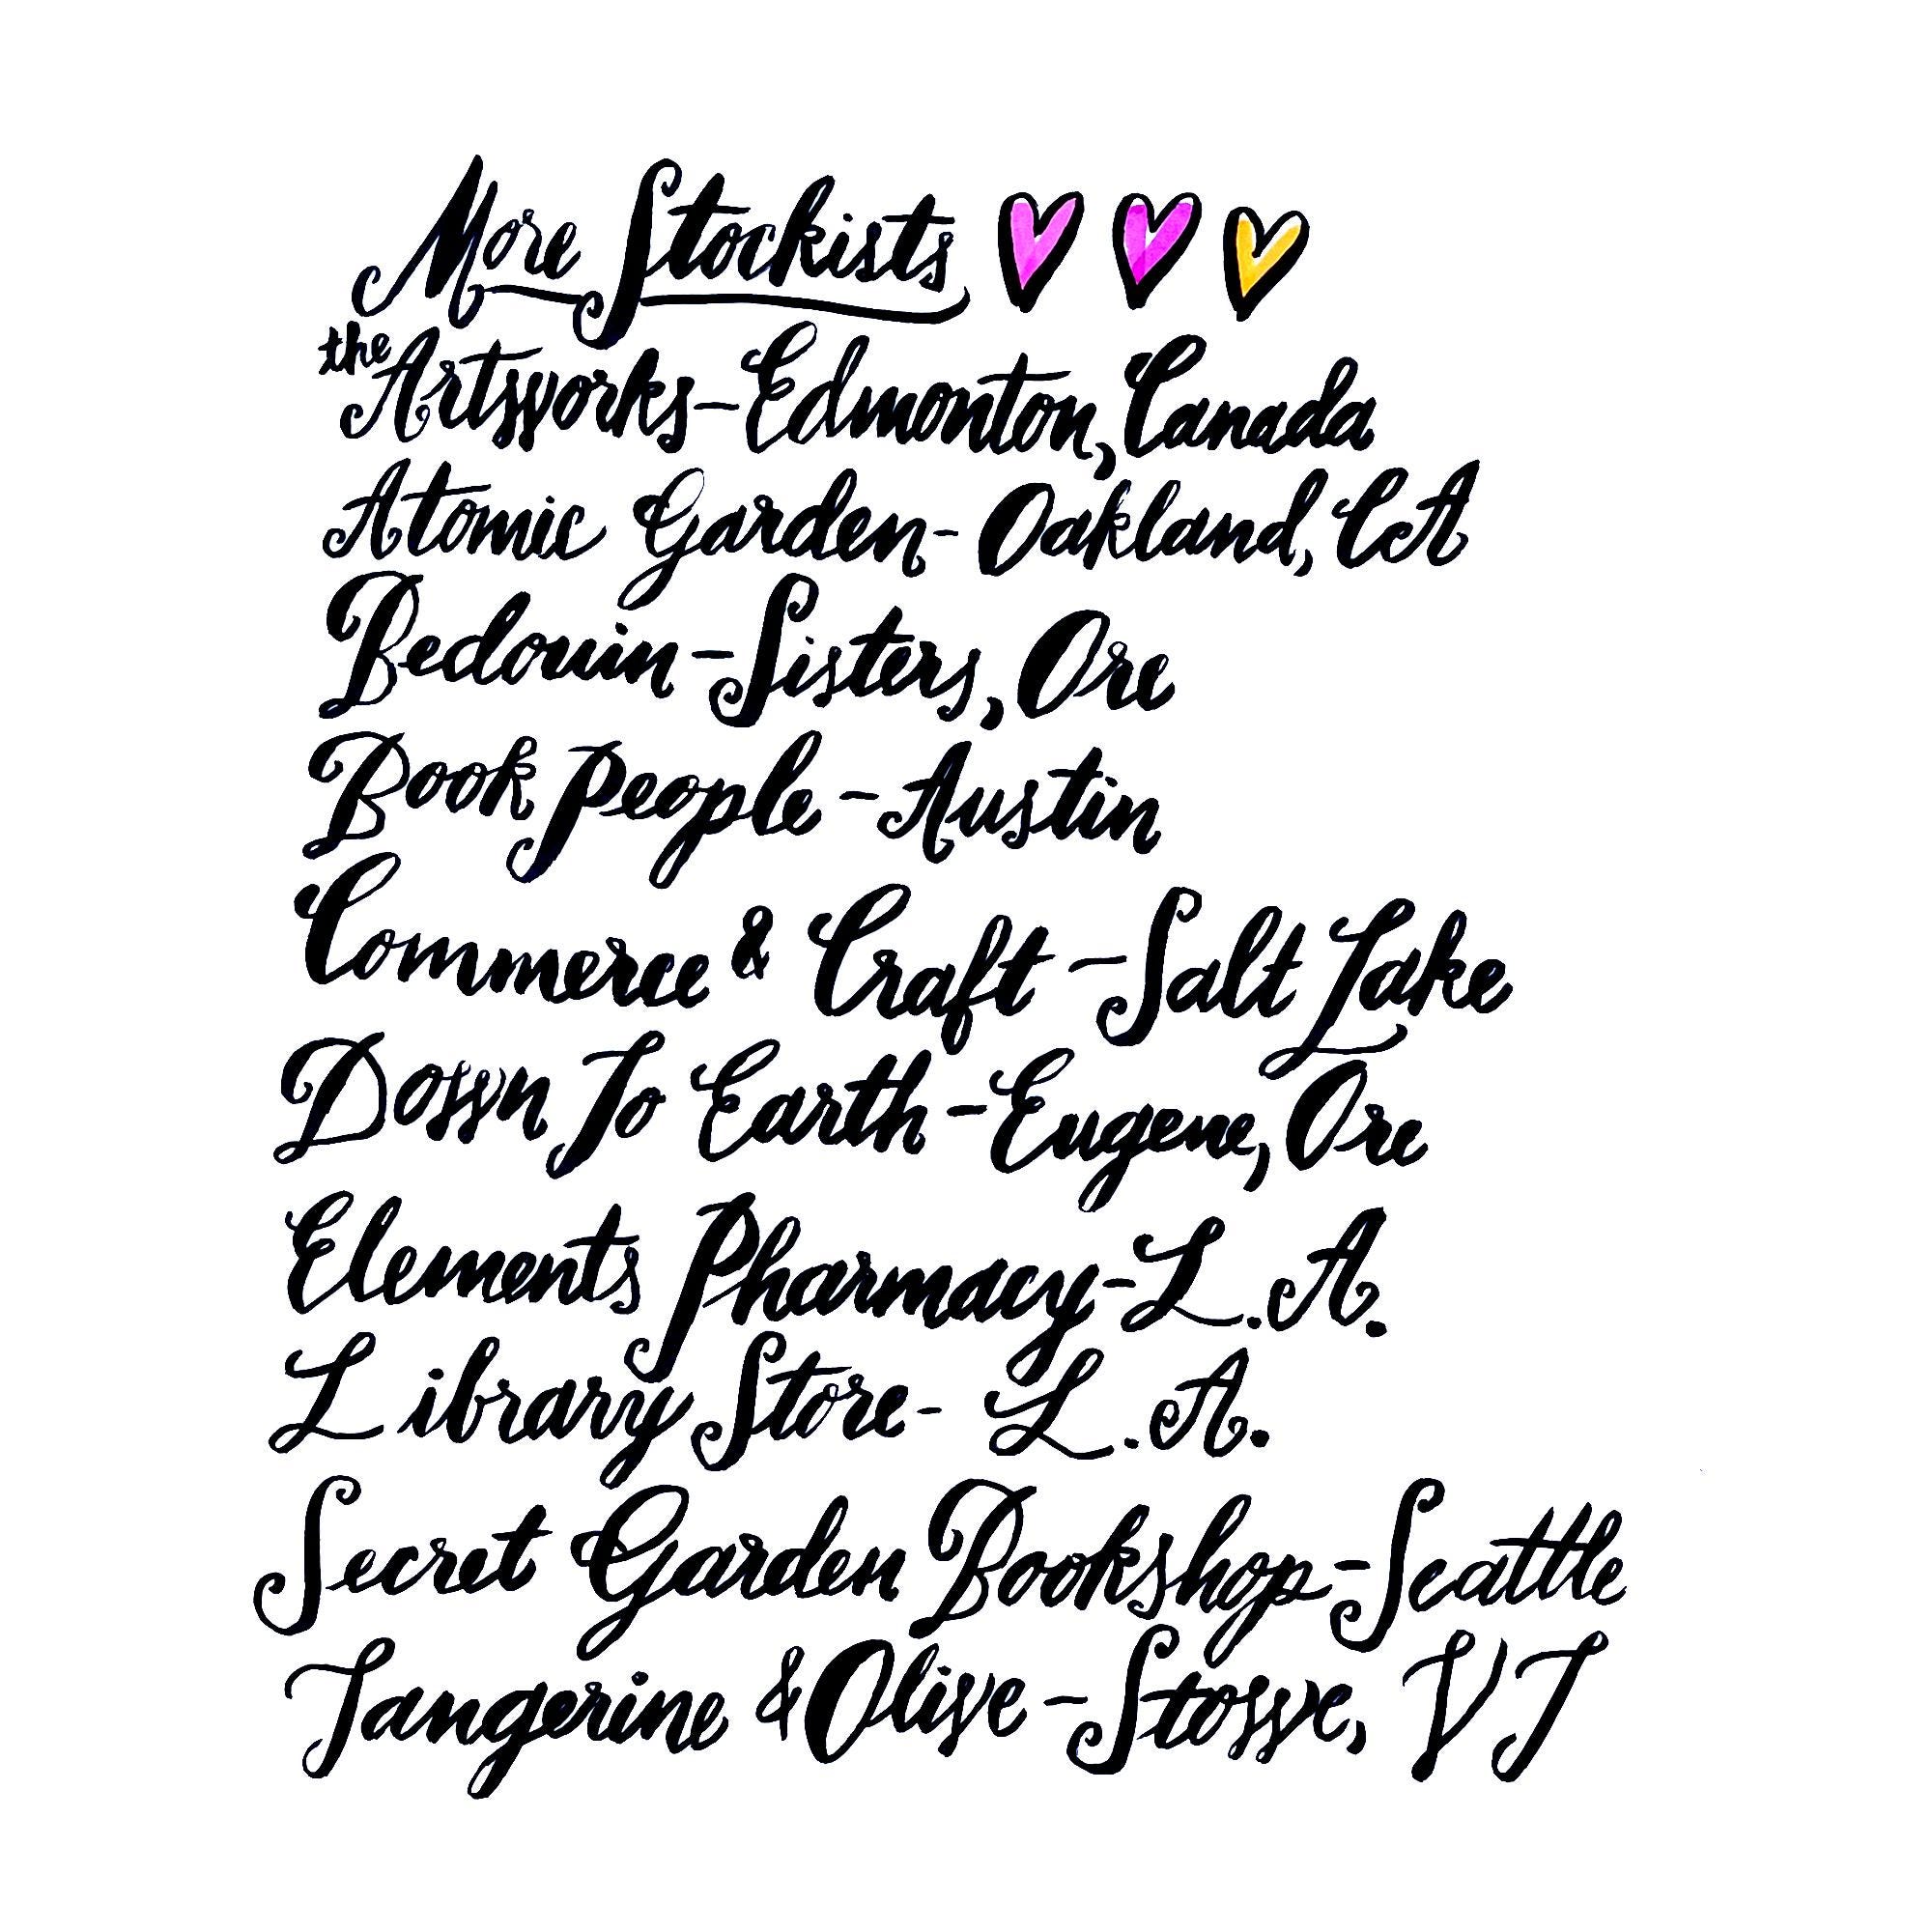 More Stockists
the Artworks - Edmonton, Canada
Atomic Garden - Oakland, CA
Bedouin - Sisters, Ore
Book People - Austin
Commerce & Craft - Salt Lake
Down To Earth - Eugene, Ore
Elements Pharmacy - L.A.
Library Store - L.A.
Secret Garden Bookshop - Seattle
Tangerine & Olive - Stowe, VT